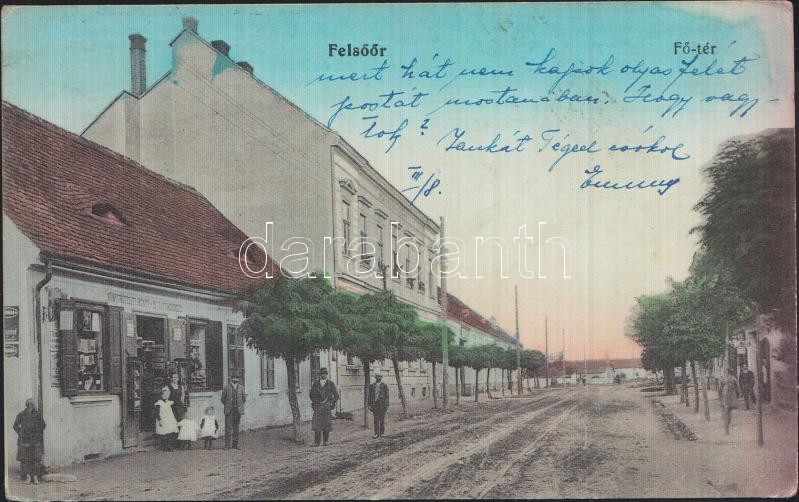 Felsőőr
Fő-tér
mert hát nem kapok olyas felét
postát mostanában. Hogy vagy-
tok?
Jankát Téged csókol
Emmus
III/8.
darabanth